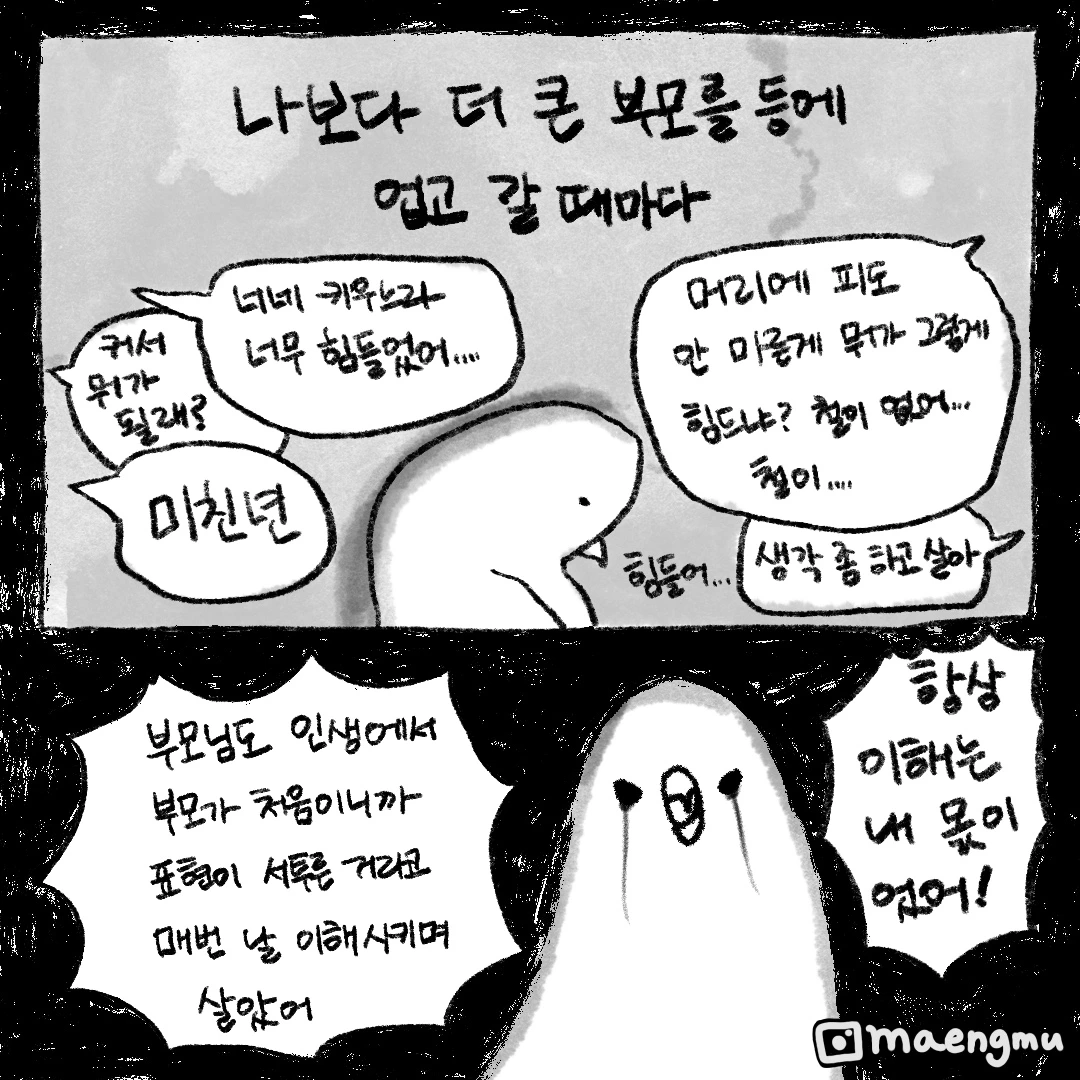 나보다 더 큰 부모를 등에
업고 갈 때마다
너네 키우느라
너무 힘들었어....
커서
뭐가
될래?
미친년
머리에 피도
안 마른게 뭐가 그렇게
힘드냐? 철이 없어...
철이....
생각 좀 하고 살아
힘들어...
부모님도 인생에서
부모가 처음이니까
표현이 서투른 거라고
매번 날 이해시키며
살았어
항상
이해는
내 몫이
었어!
maengmu